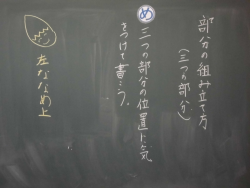 部分の組み立て方
(三つの部分)
め
三つの部分の位置に気
をつけて書こう。
左ななめ上